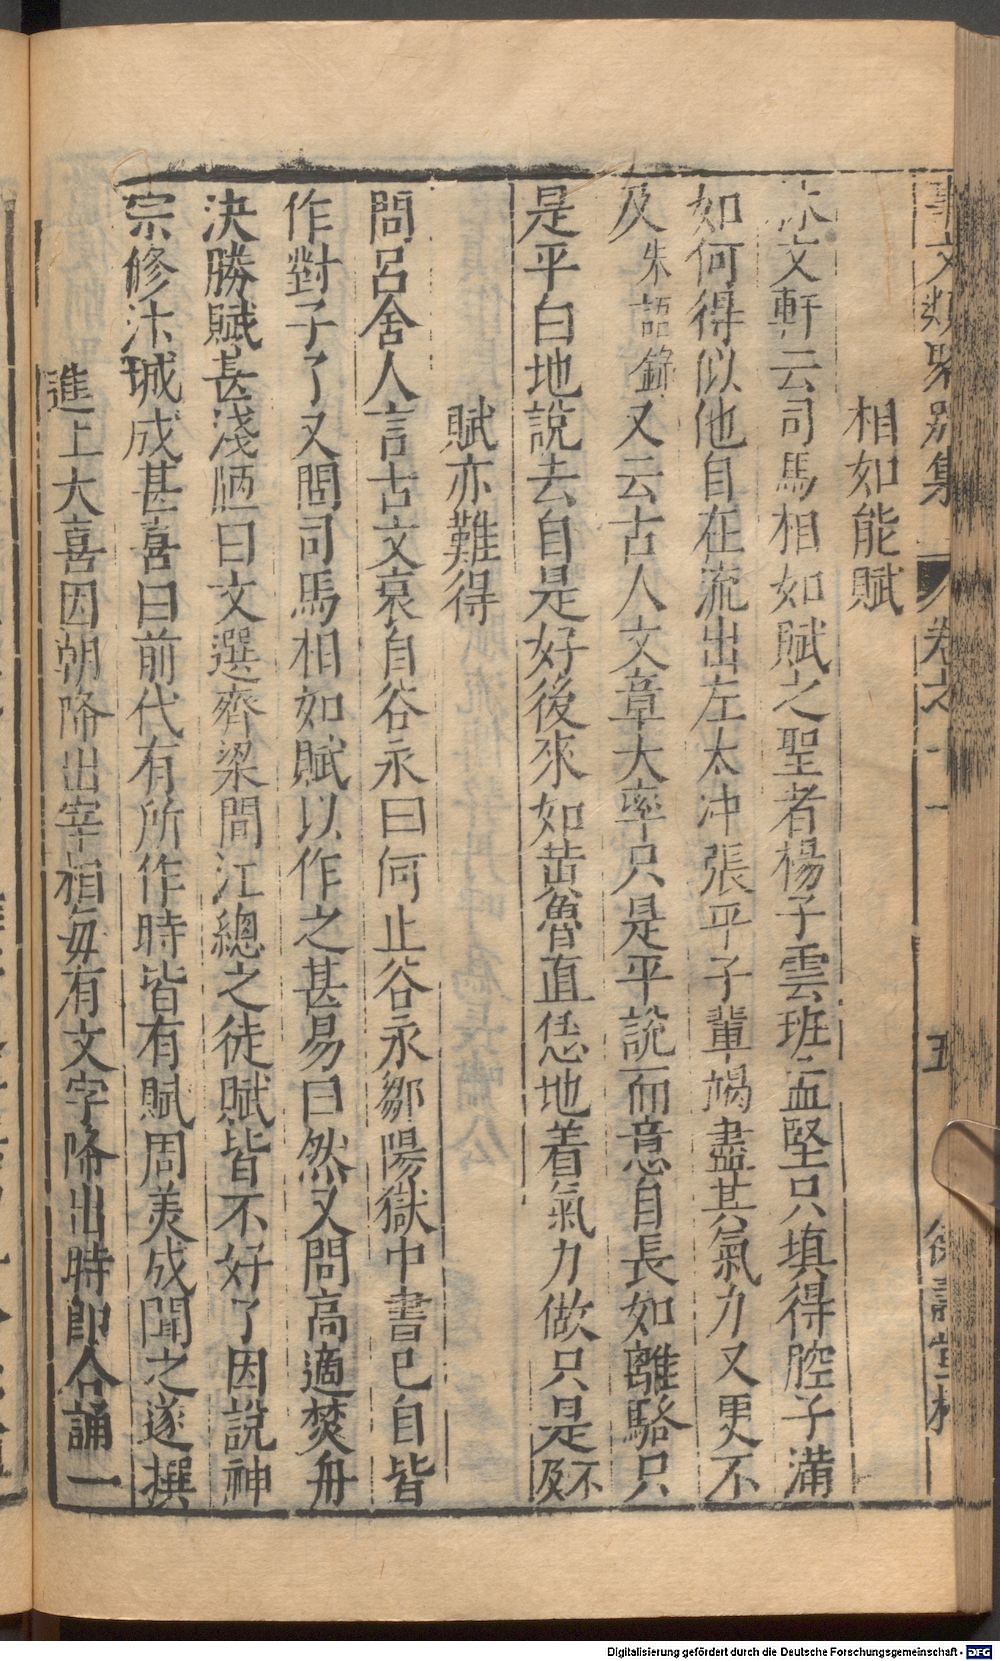 事文類聚別集 卷之十一 五
相如能賦
林文軒云司馬相如賦之聖者楊子雲班孟堅只填得腔子滿
如何得似他自在流出左太冲張平子輩竭盡其氣力又更不
及朱語錄又云古人文章大率只是平說而意自長如離騷只
是平白地說去自是好後來如黃魯直恁地着氣力做只是不及
賦亦難得
問呂舍人言古文衰自谷永曰何止谷永鄒陽獄中書已自皆
作對子了又問司馬相如賦以作之甚易曰然又問高適焚舟
決勝賦甚淺陋曰文選齊梁間江總之徒賦皆不好了因說神
宗修汴城成甚喜曰前代有所作時皆有賦周美成聞之遂撰
進上大喜因朝降出宰相每有文字降出時即合誦一
Digitalisierung gefördert durch die Deutsche Forschungsgemeinschaft - DFG